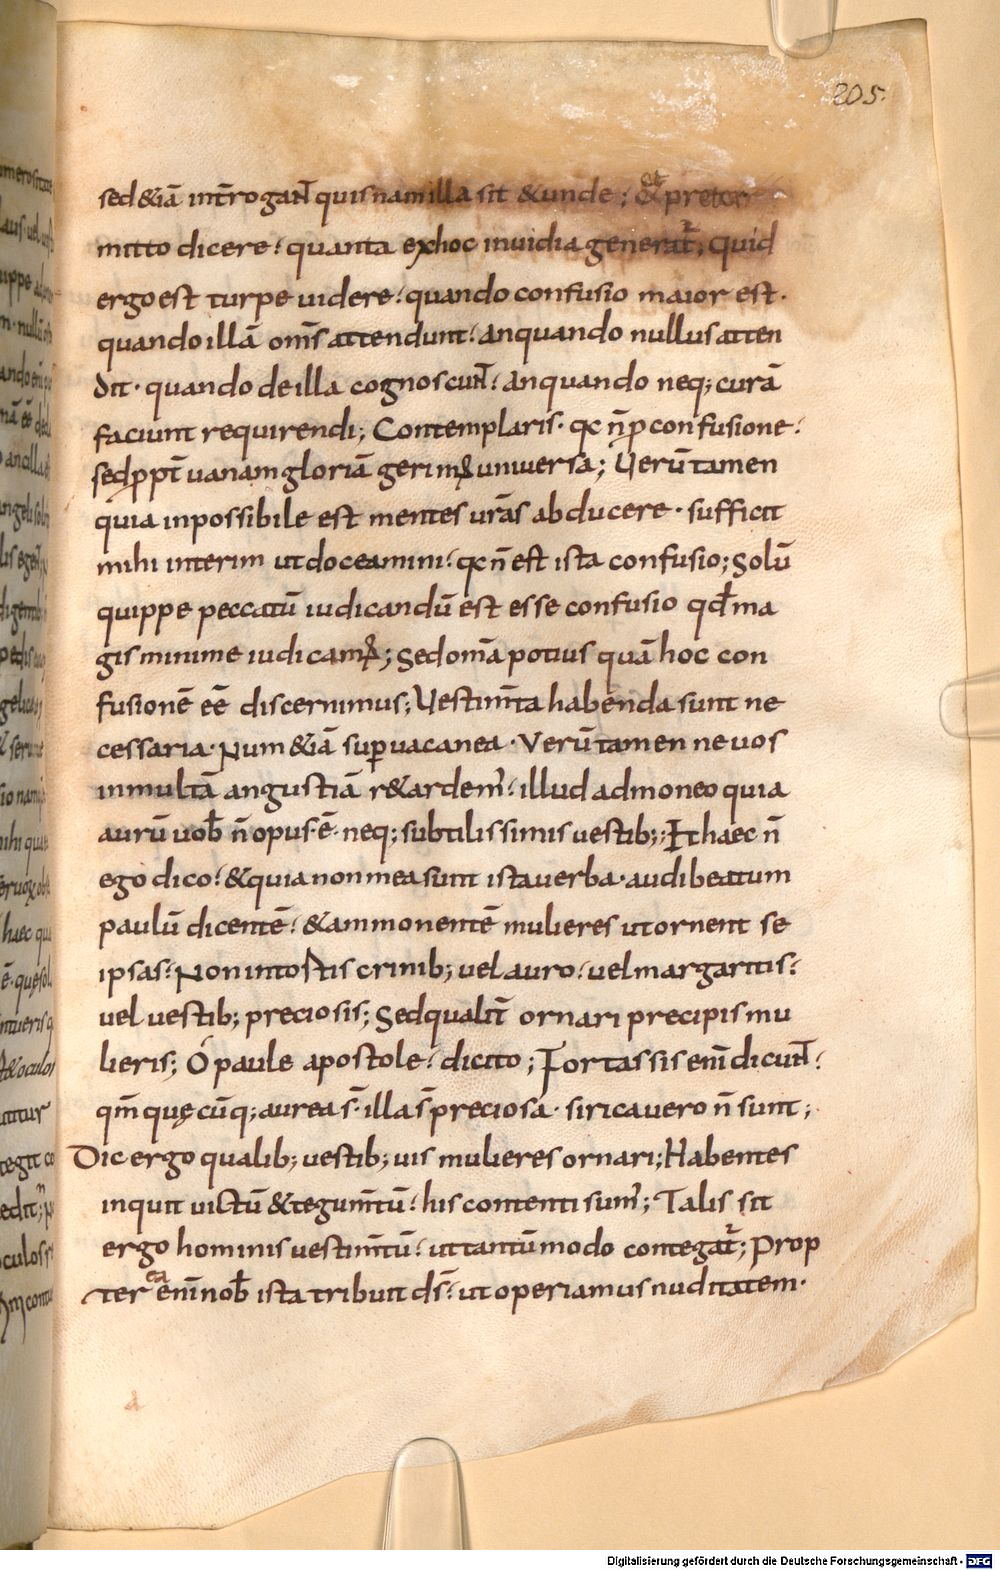 205.
sed &iā int̄rogan̄t quisnam illa sit &unde; & preter
mitto dicere: quanta exhoc inuidia generat̄; quid
ergo est turpe uidere: quando confusio maior est.
quando illā om̄s attendunt: an quando nullus atten
dit. quando de illa cognoscun̄t: an quando neq; curā
faciunt requirendi; Contemplaris. qc n̄ ꝓ confusione:
sed ꝓpt̄ uanam gloriā gerimꝰ uniuersa; Uerūtamen
quia inpossibile est mentes ur̄as abducere. sufficit
mihi interim ut doceamini: qc n̄ est ista confusio; Solū
quippe peccatū iudicandū est esse confusio qd̄ ma
gis minime iudicamꝰ; Sed om̄a potius quā hoc con
fusionē eē discernimus; Uestim̄ta habenda sunt ne
cessaria. Num &iā suꝑuacanea. Verūtamen ne uos
inmultā angustiā r&ardem̄: illud admoneo quia
aurū uob̄ n̄ opus. ē. neq; subtilissimis uestib;; Et haec n̄
ego dico: & quia non mea sunt ista uerba. audi beatum
paulū dicentē: & ammonentē mulieres ut ornent se
ipsas: Non intostis crinib; uel auro: uel margaritis:
uel uestib; preciosis; Sed qualit̄ ornari precipis mu
lieris; Ó paule apostole: dicito; Fortassis eni̅ dicun̄t:
qm̄ quęcūq; aurea s̄. illa s̄ preciosa. sirica uero n̄ sunt;
Dic ergo qualib; uestib; uis mulieres ornari; Habentes
inquit uictū & tegum̄tū: his contenti sum̄; Talis sit
ergo hominis uestim̄tū: ut tantūmodo contegat̄; Prop
ter ea eni̅ nob̄ ista tribuit ds̄: ut operiamus nuditatem.
Digitalisierung gefördert durch die Deutsche Forschungsgemeinschaft - DFG